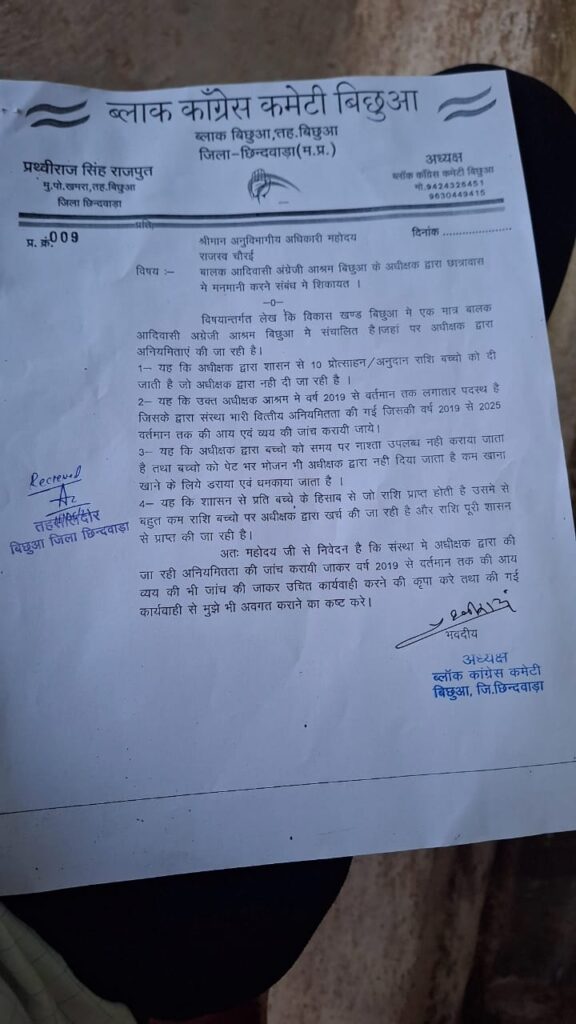 ब्लाक काँग्रेस कमेटी बिछुआ
ब्लाक बिछुआ,तह.बिछुआ
जिला-छिन्दवाड़ा(म.प्र.)
प्रथ्वीराज सिंह राजपुत
मु.पो.खमरा,तह.बिछुआ
जिला छिन्दवाड़ा
अध्यक्ष
ब्लॉक काँग्रेस कमेटी बिछुआ
मो.9424326451
9630449415
प्र. क्रं009
प्रति,
दिनांक ......................
श्रीमान अनुविभागीय अधिकारी महोदय
राजस्व चौरई
विषय :— बालक आदिवासी अंग्रेजी आश्रम बिछुआ के अधीक्षक द्वारा छात्रावास
मे मनमानी करने संबंध मे शिकायत ।
—0—
विषयान्तर्गत लेख कि विकास खण्ड बिछुआ मे एक मात्र बालक
आदिवासी अग्रेजी आश्रम बिछुआ मे संचालित है।जहां पर अधीक्षक द्वारा
अनियमिताएं की जा रही है।
1— यह कि अधीक्षक द्वारा शासन से 10 प्रोत्साहन/अनुदान राशि बच्चो को दी
जाती है जो अधीक्षक द्वारा नही दी जा रही है ।
2— यह कि उक्त अधीक्षक आश्रम मे वर्ष 2019 से वर्तमान तक लगातार पदस्थ है
जिसके द्वारा संस्था भारी वित्तीय अनियमितता की गई जिसकी वर्ष 2019 से 2025
वर्तमान तक की आय एवं व्यय की जांच करायी जाये।
3— यह कि अधीक्षक द्वारा बच्चो को समय पर नाश्ता उपलब्ध नही कराया जाता
है तथा बच्चो को पेट भर भोजन भी अधीक्षक द्वारा नही दिया जाता है कम खाना
खाने के लिये डराया एवं धमकाया जाता है ।
4— यह कि शाासन से प्रति बच्चे के हिसाब से जो राशि प्राप्त होती है उसमे से
बहुत कम राशि बच्चो पर अधीक्षक द्वारा खर्च की जा रही है और राशि पूरी शासन
से प्राप्त की जा रही है।
Recieved
तहसीलदार
बिछुआ जिला छिन्दवाड़ा
अतः महोदय जी से निवेदन है कि संस्था मे अधीक्षक द्वारा की
जा रही अनियमितता की जांच करायी जाकर वर्ष 2019 से वर्तमान तक की आय
व्यय की भी जांच की जाकर उचित कार्यवाही करने की कृपा करे तथा की गई
कार्यवाही से मुझे भी अवगत कराने का कष्ट करे।
भवदीय
अध्यक्ष
ब्लॉक कांग्रेस कमेटी
बिछुआ, जि.छिन्दवाड़ा